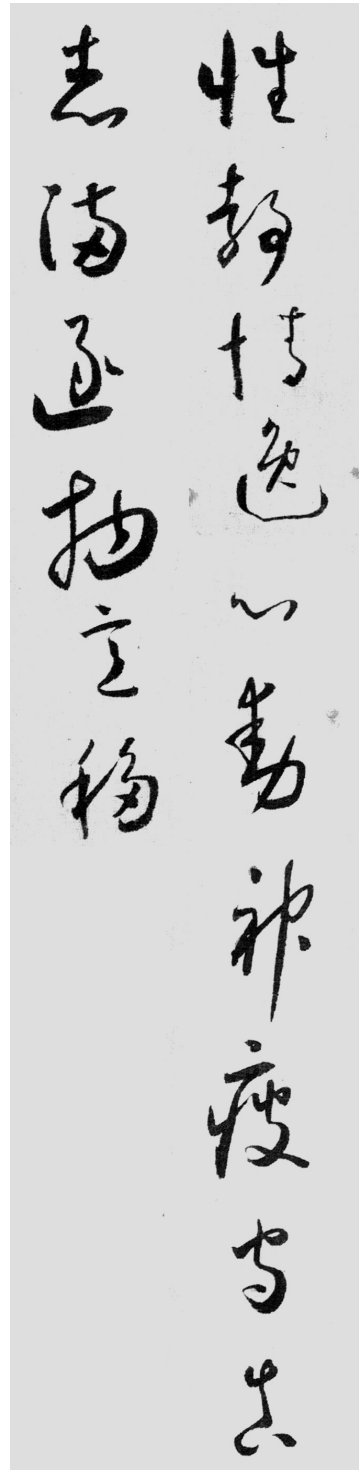 性靜情逸心動神疲守真
志滿逐物意移